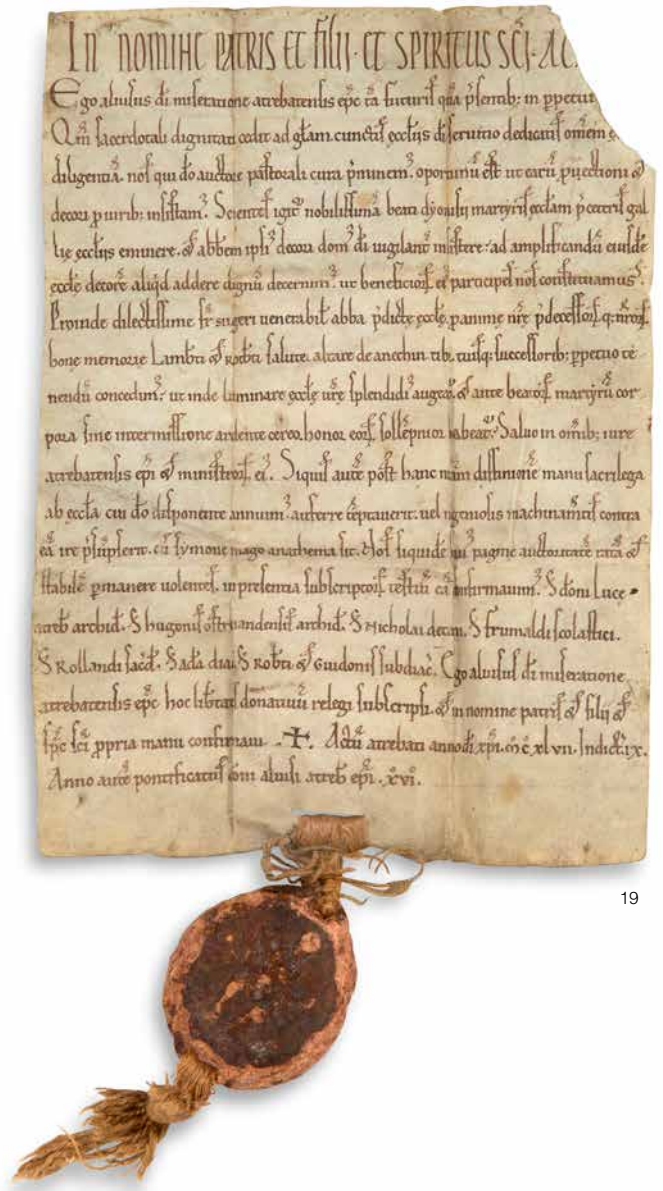 IN NOMINE PATRIS ET FILII · ET SPIRITUS SCI · AC
Ego aluisus di miseratione atrebatensis epc tā futuris quā psentib; in perpetuū
Qm̄ sacerdotali dignitati cedit ad glam cunctis eccliis di seruitio dedicatis omēm
diligentiā. nos qui do auctore pastorali cura pminem᾽. oportunū est ut earū puectioni &
decori p uirib; insistam᾽. Scientes igit᷑ nobilissimā beati dyonisii martyris ecclam p ceteris gal
lie eccliis eminere. & abbem ipsi᾽ decori dom᾽ di uigilant᷑ insistere: ad amplificandū eiusdē
eccle decorē aliqd addere dignū decernim᾽. ut beneficiorꝝ ei᾽ participes nos constituamus.
Proinde dilectissime fr sugeri uenerabil abba pdicte eccle. p anime nre pdecessorꝝ q; nrorꝝ
bone memorie Lambti & Robti salute. altare de anechin tibi. tuisq; successorib; ppetuo te
nendū concedim᾽: ut inde luminare eccle ure splendidi᾽ augeat᷑. & ante beatorꝝ martyrū cor
pora sine intermissione ardente cereo. honor eorꝝ sollēpnior habeat᷑. Saluo in omīb; iure
atrebatensis epi & ministrorꝝ ei᾽. Siquis autē post hanc nram diffinitionē manu sacrilega
ab eccla cui do disponente annuim᾽. auferre tēptauerit. uel ingeniosis machinamtis contra
eā ire psūpserit. cū symone mago anathema sit. Nos siquidē hui᾽ pagine auctoritatē ratā &
stabilē pmanere uolentes. in presentia subscriptorꝝ testiū eā confirmauim᾽. S dom̄i Luce
atreb archid. S hugonis ostreuandensis archid. S Nicholai decani. S frumaldi scolastici.
S Rollandi sacd. S ada diac. S Robti & Guidonis subdiac. Ego aluisus di miseratione
atrebatensis epc hoc libtatis donatiuū relegi subscripsi. & in nomine patris & filii &
spc sci ppria manu confirmaui. ✝. Actū atrebati anno di xpi. m̊ c̊ xl vii. Indict ix.
Anno autē pontificatus domi aluisi atreb epi. xvi.
19